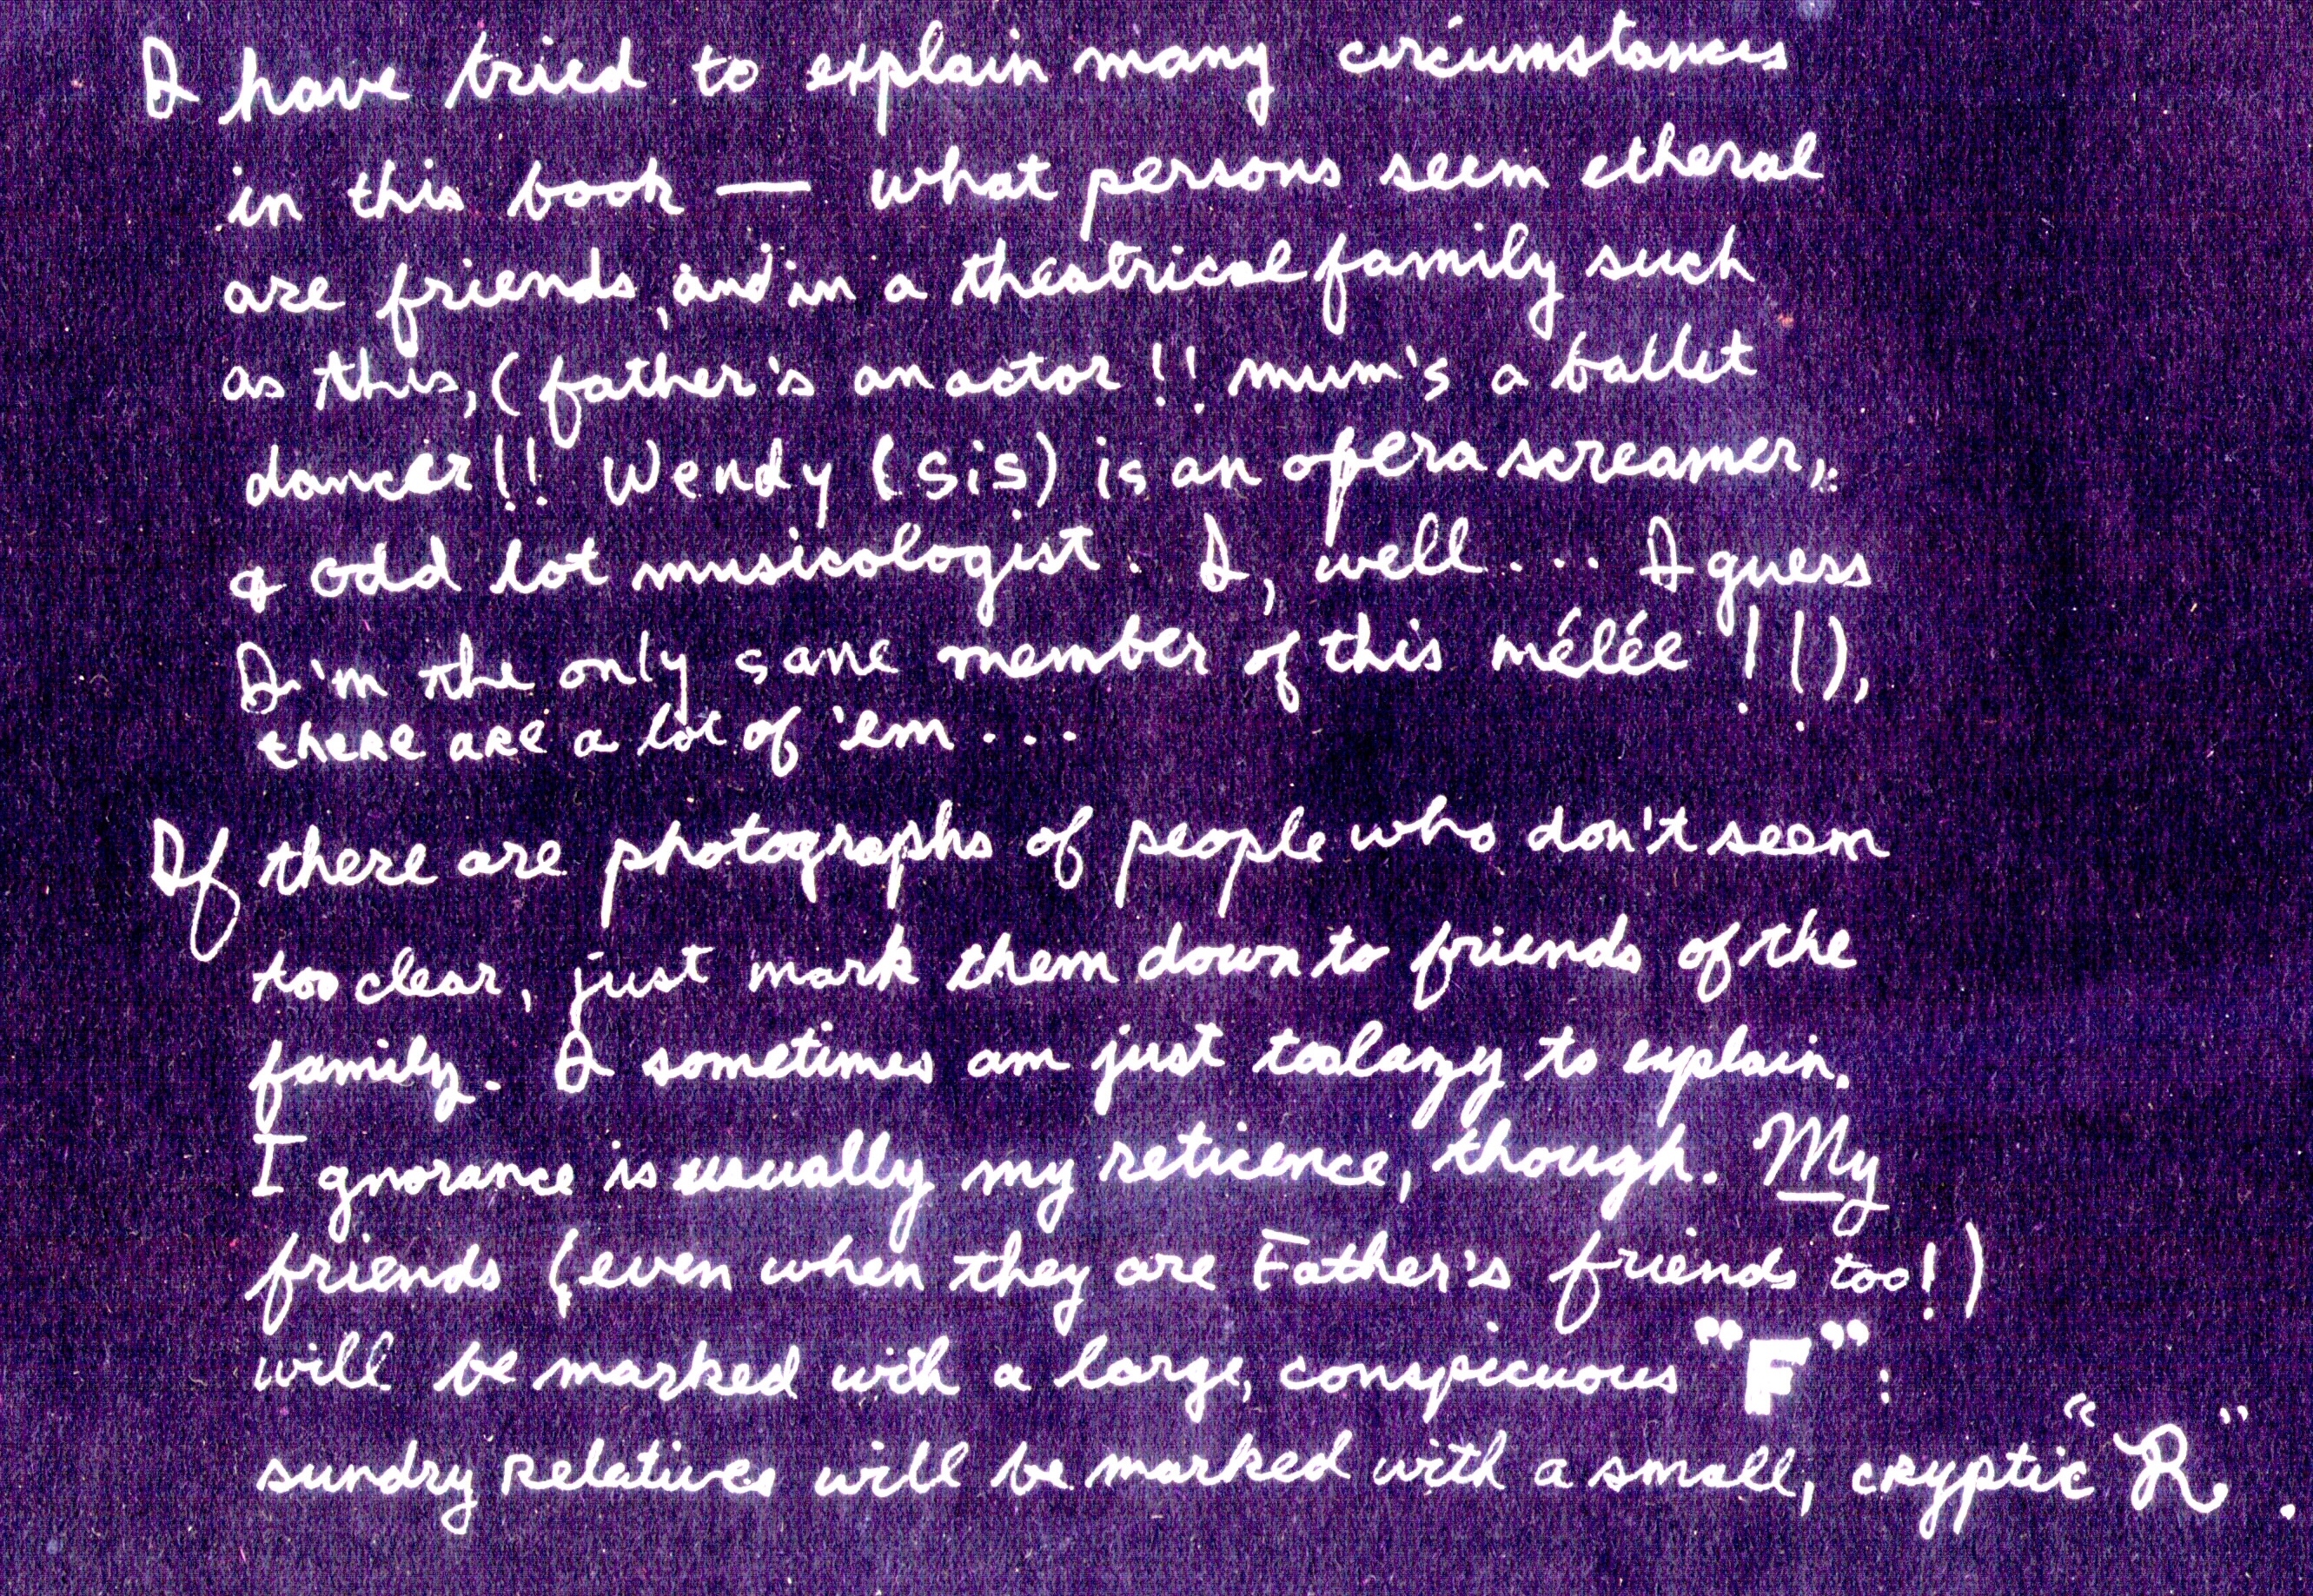 I have tried to explain many circumstances
in this book — what persons seem etheral
are friends, and in a theatrical family such
as this, (father's an actor !! mum's a ballet
dancer!! Wendy (sis) is an opera screamer,
& odd lot musicologist. I, well.... I guess
I'm the only sane member of this mélée !!),
there are a lot of 'em ...
If there are photographs of people who don't seem
too clear, just mark them down to friends of the
family. I sometimes am just too lazy to explain.
Ignorance is usually my reticence, though. My
friends (even when they are Father's friends too!)
will be marked with a large, conspicuous "F":
sundry relatives will be marked with a small, cryptic "R".